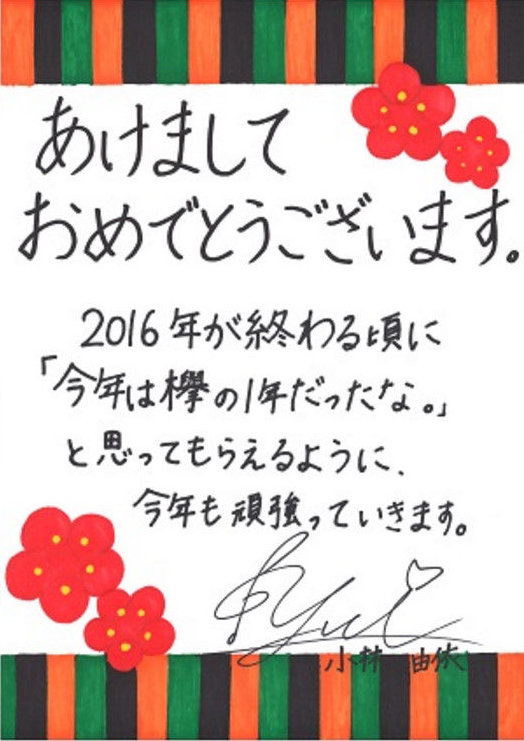 あけまして
おめでとうございます。
2016年が終わる頃に
「今年は欅の1年だったな。」
と思ってもらえるように、
今年も頑張っていきます。
Yui
小林 由依